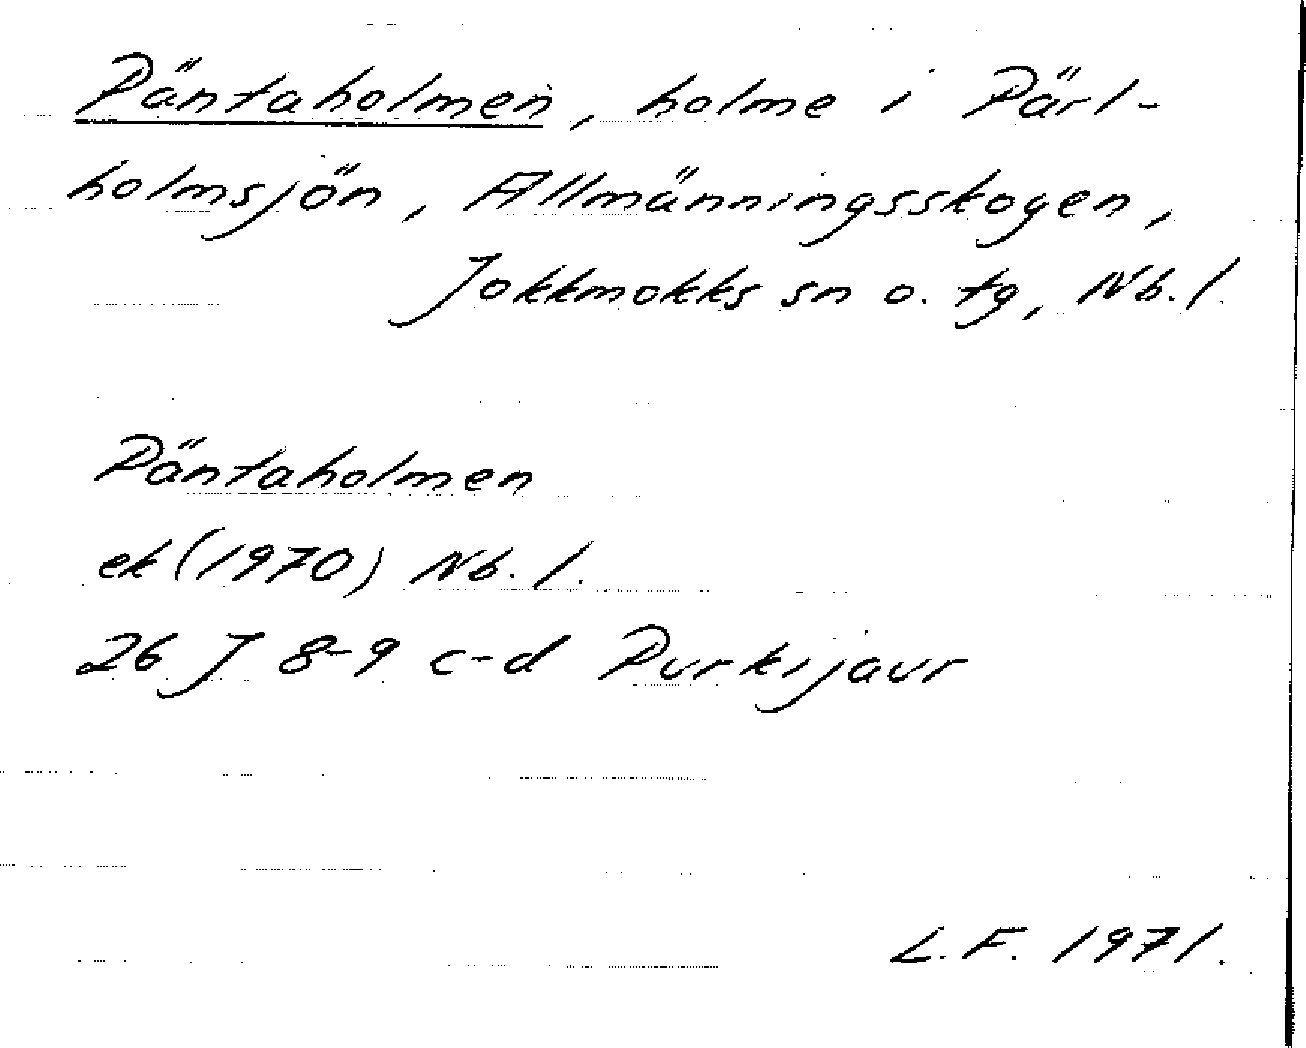 Päntaholmen, holme i Pärl-
holmsjön, Allmänningsskogen,
Jokkmokks sn o. tg, Nb. l.
Päntaholmen
ek (1970) Nb. l.
26 J 8-9 c-d Purkijaur
L.F. 1971.